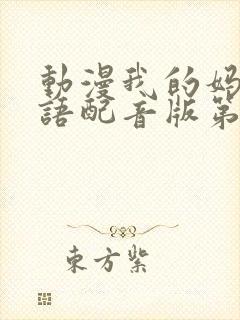 動漫我的媽
語配音版第
東方紫